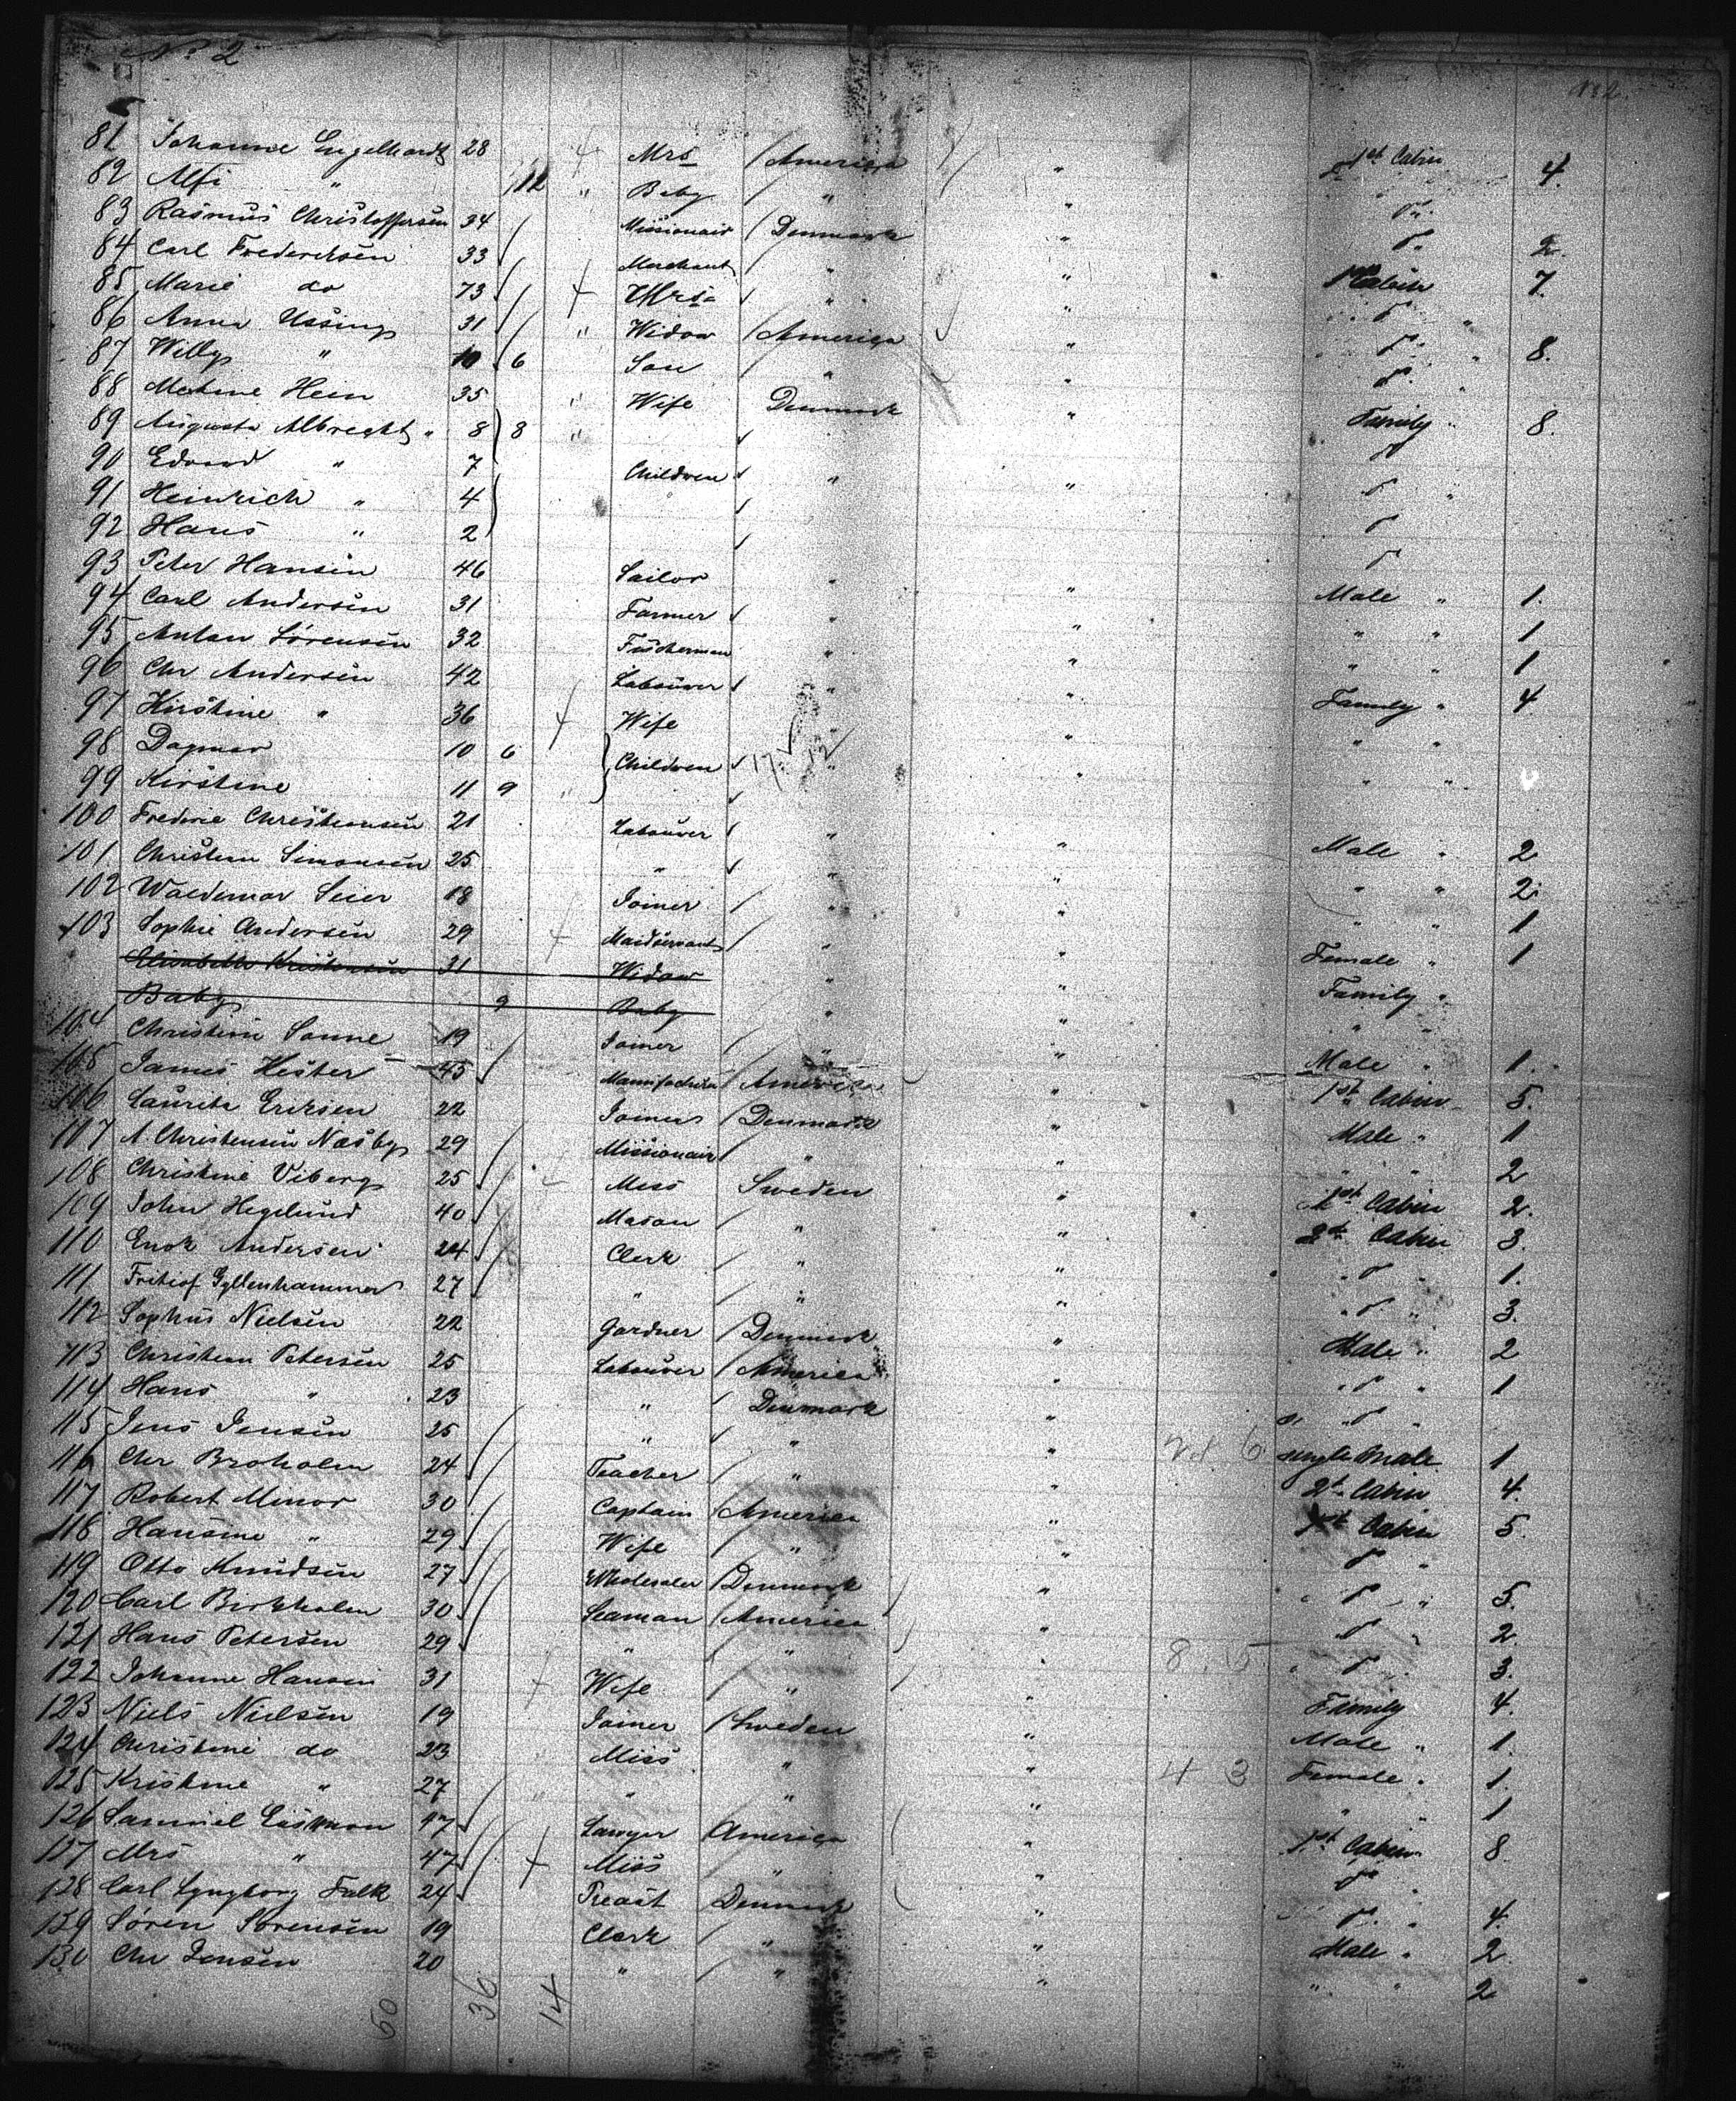 No 2
81 Johanne Engelhardt 28 Mrs America " 1st Cabin 4.
82 Alfi " 12 " Baby " " do
83 Rasmus Christoffersen 34 Missionair Denmark " do 2.
84 Carl Frederiksen 33 Merchant " " 1st Cabin 7.
85 Marie do 73 Mrs " " do "
86 Anna Ussing 31 " Widow America " do " 8.
87 Willy " 10 6 Son " " do "
88 Metine Hein 35 " Wife Denmark " Family " 8.
89 Augusta Albrecht " 8 8 " do
90 Edvard " 7 Children " " do "
91 Heinrich " 4 do
92 Hans " 2 do
93 Peter Hansen 46 Sailor " " Male " 1.
94 Carl Andersen 31 Farmer " " " " 1
95 Anton Sørensen 32 Fischerman " " " " 1
96 Chr Andersen 42 Labourer " " Family " 4
97 Kirstine " 36 Wife " " " "
98 Dagmar 10 6 Children " " " "
99 Kirstine 11 9 "
100 Frederic Christiansen 21 Labourer " " Male " 2
101 Christian Simonsen 25 " " " " " 2.
102 Waldemar Seier 18 Joiner " " " " 1
103 Sophie Andersen 29 Maidservant " " Female " 1
Elisabeth Kristensen 31 Widow " " Family "
Baby 9 Baby " " " "
104 Christian Sonne 19 Joiner " " Male " 1.
105 James Hester 45 America " 1st Cabin 5.
106 Lauritz Eriksen 22 Joiner Denmark " Male " 1
107 A. Christensen Næsby 29 Missionair " " " " 2
108 Christine Viberg 25 Miss Sweden " 1st Cabin 2.
109 John Hegelund 40 Mason " " 2d Cabin 3.
110 Enok Andersen 24 Clerk " " " do " 1.
111 Frithiof Gyllenhammer 27 " " " " do " 3.
112 Sophus Nielsen 22 Gardner Denmark " Male " 2
113 Christian Petersen 25 Labourer America " " do " 1
114 Hans " 23 " Denmark " " do "
115 Jens Jensen 25 " " " 6 single Male 1
116 Chr Broholm 24 Teacher " " 2d Cabin 4.
117 Robert Minor 30 Captain America " 1st Cabin 5.
118 Hansine " 29 Wife " " do "
119 Otto Knudsen 27 Wholesaler Denmark " " do " 5.
120 Carl Birkholm 30 Seaman America " do " 2.
121 Hans Petersen 29 " " " 8 5 " do " 3.
122 Johanne Hansen 31 Wife " " Family 4.
123 Niels Nielsen 19 Joiner Sweden " Male " 1.
124 Christine do 23 Miss " " 4 3 Female " 1.
125 Kristine " 27 " " " " " 1
126 Samuel 47 Lawyer America " 1st Cabin 8
127 Mrs " 47 Miss " " do "
128 Carl Lyngborg Falk 24 Preast Denmark " " do " 4.
129 Søren Sørensen 19 Clerk " " Male " 2.
130 Chr Jensen 20 " " " " " 2
60 36 14